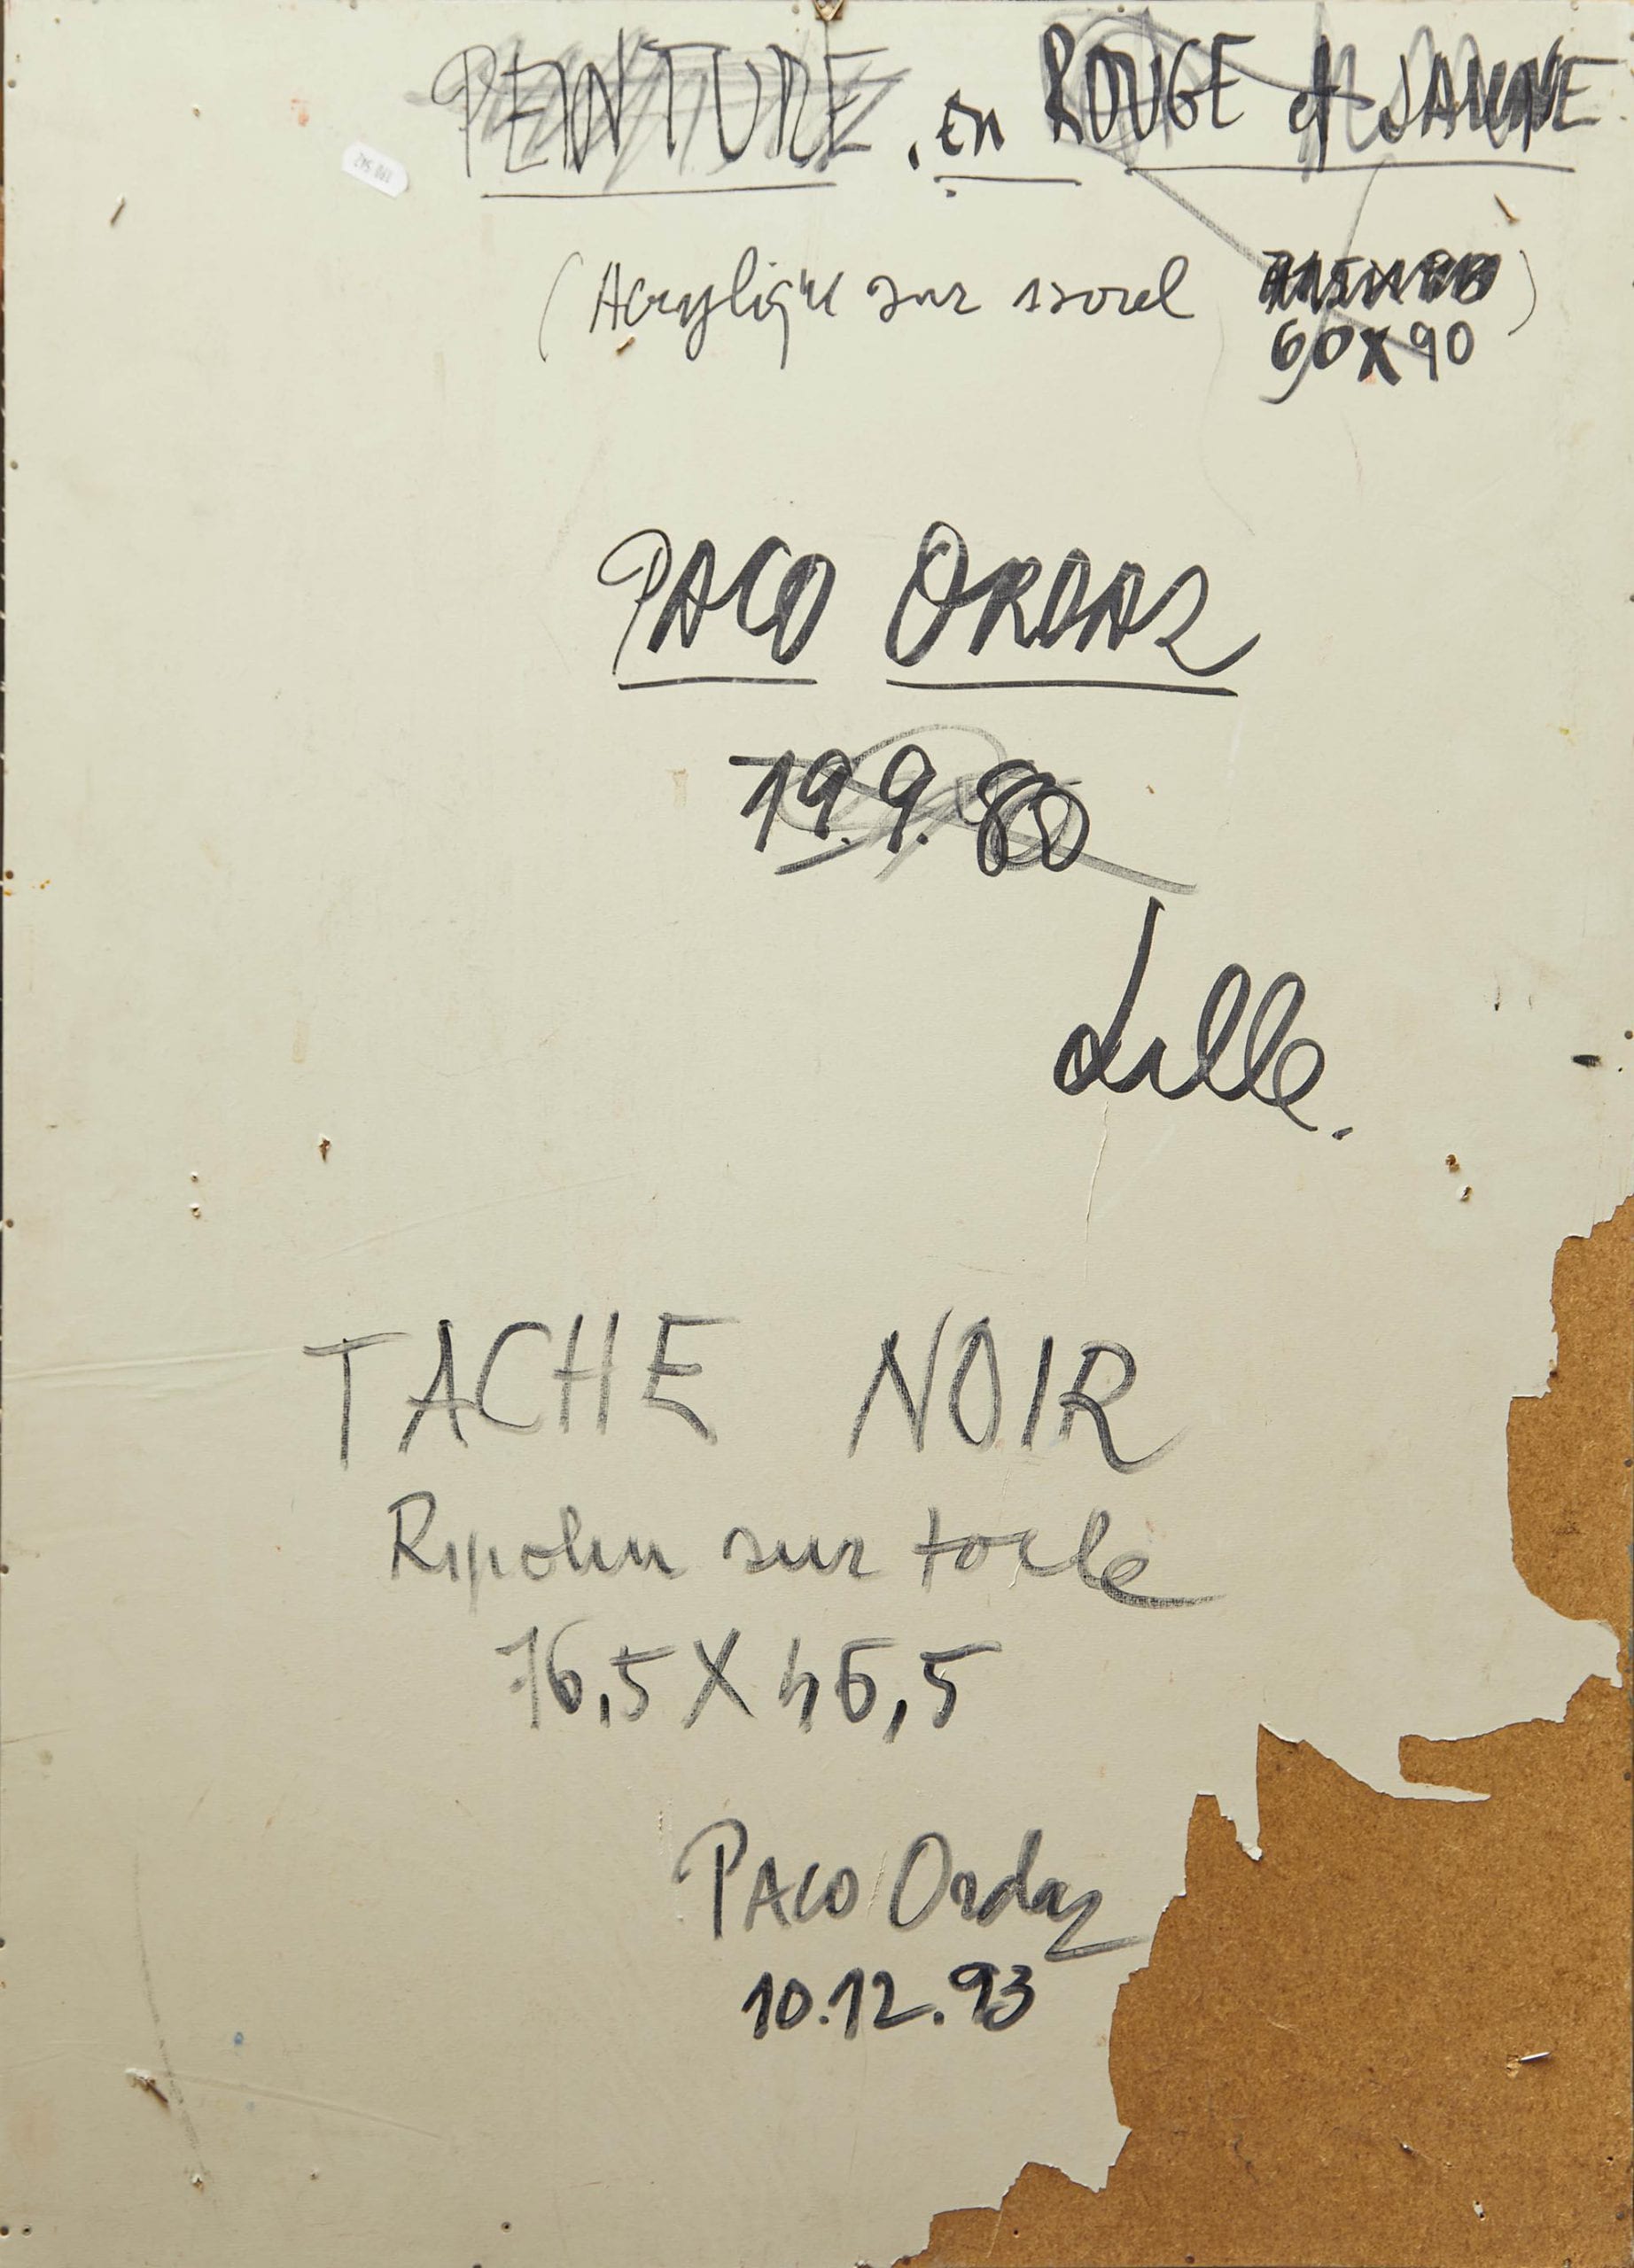 PEINTURE . en ROUGE et JAUNE
(Acrylique sur isorel )
60X90
PACO ORDAZ
19.9.80
Lille.
TACHE NOIR
Ripolin sur toile
76,5 X 46,5
PACO Ordaz
10.12.93